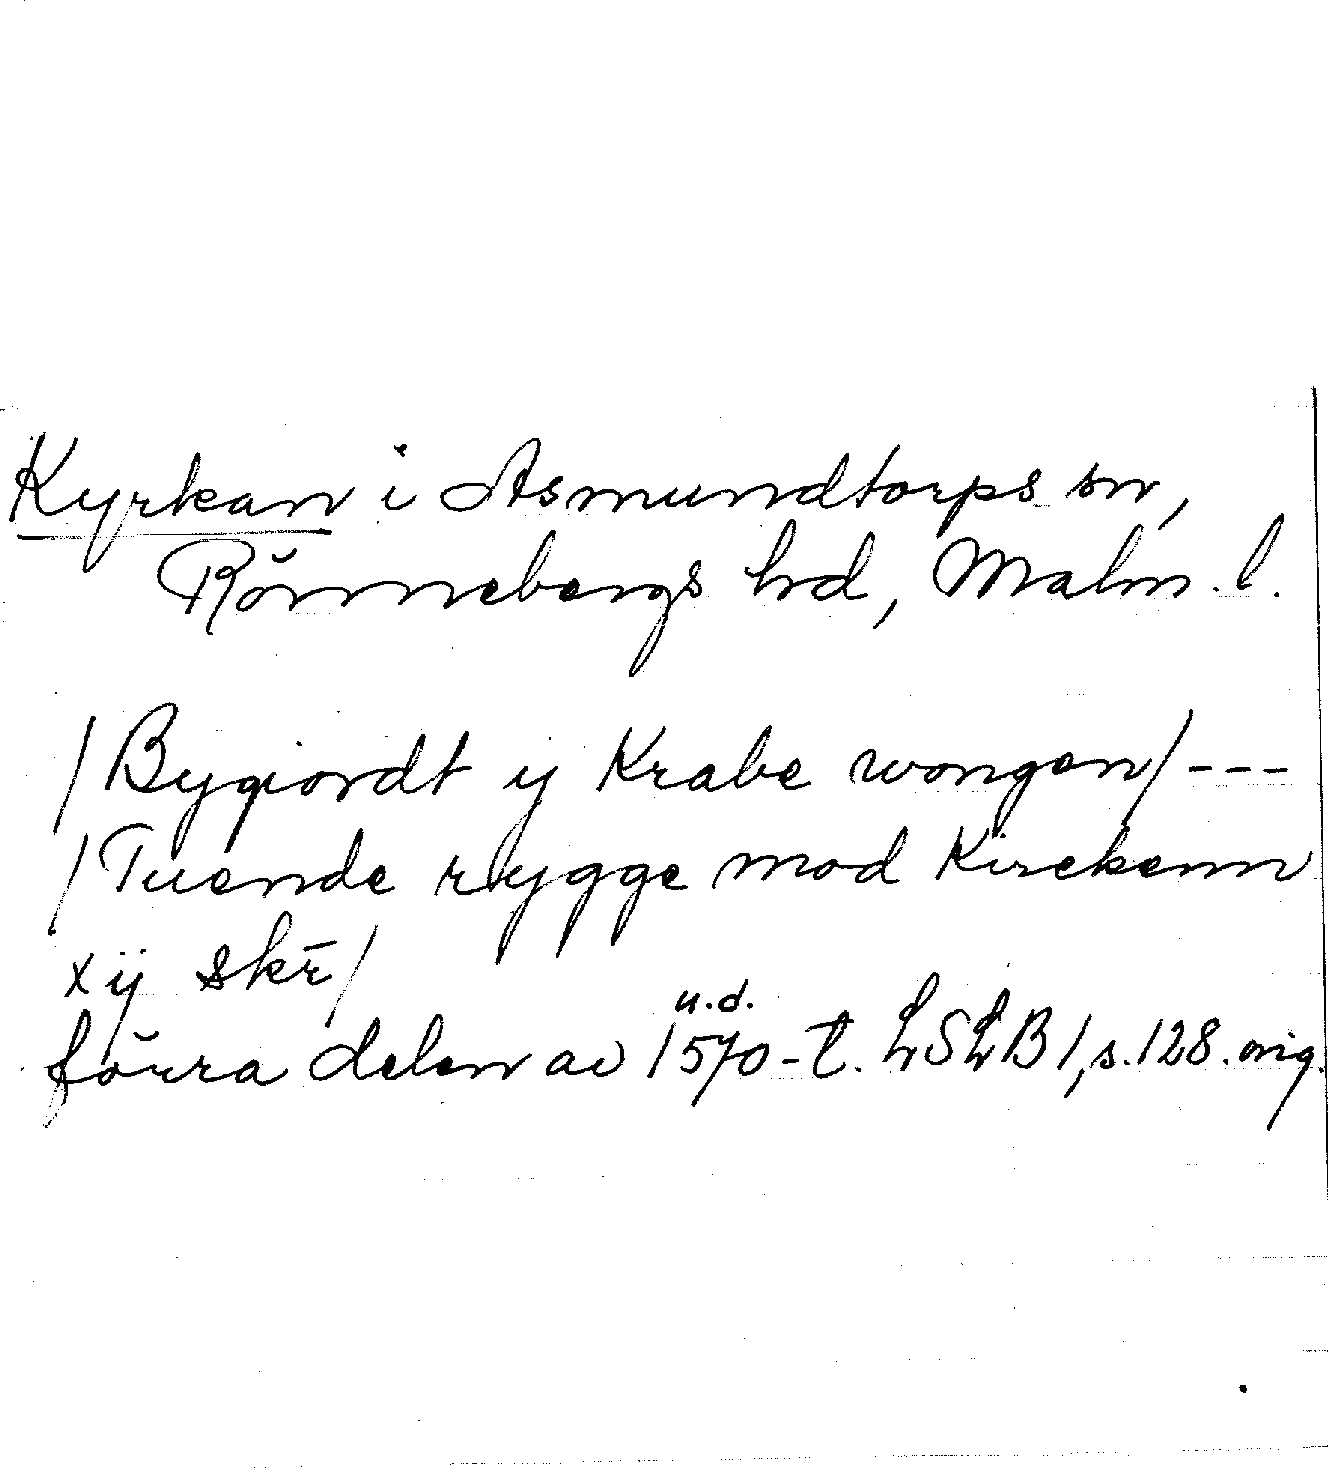 Kyrkan i Asmundtorps sn,
Rönnebergs hrd, Malm. l.
/Bygiordt ij Krabe wongen/ ---
/Tuende rygge mod Kirckenn
xij skr̄/
u.d.
förra delen av 1570-t. LSLB 1, s. 128. orig.